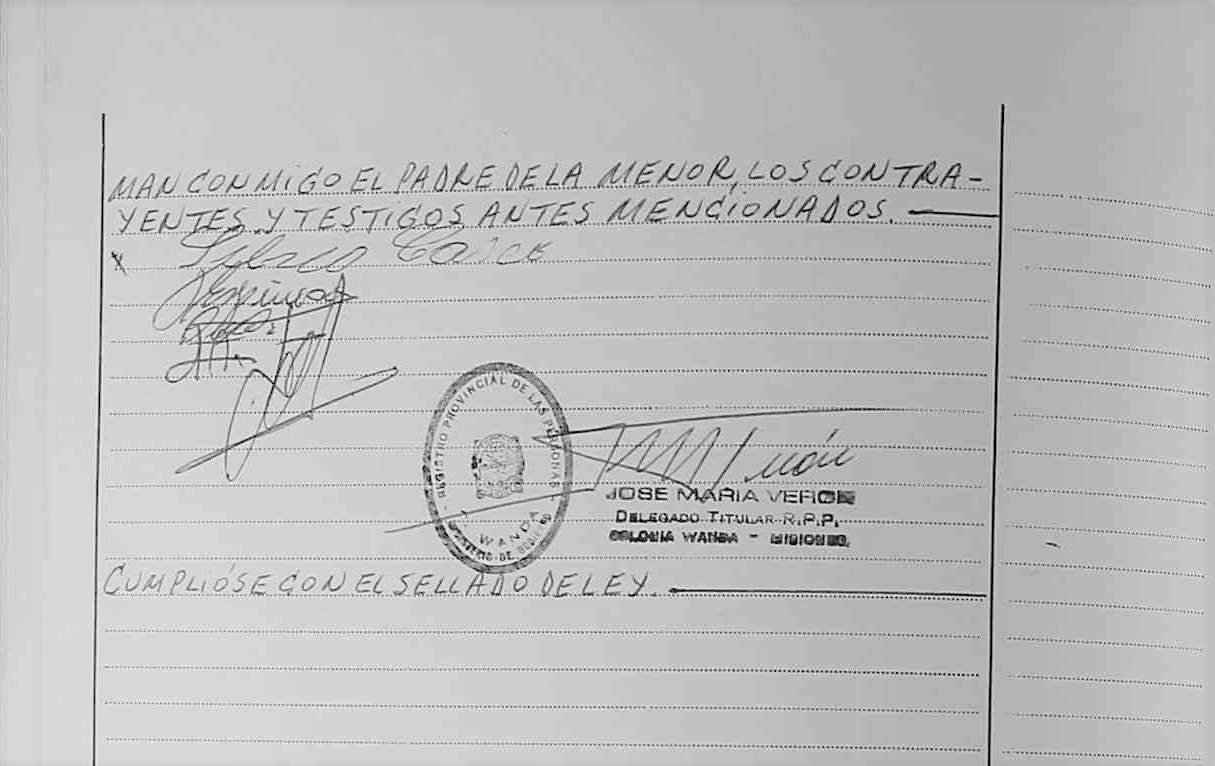 MAN CONMIGO EL PADRE DE LA MENOR, LOS CONTRA-
YENTES Y TESTIGOS ANTES MENCIONADOS.
X
REGISTRO PROVINCIAL DE LAS PERSONAS
WANDA
JOSE MARIA VERON
DELEGADO TITULAR R.P.P.
COLONIA WANDA - MISIONES
CUMPLIÓSE CON EL SELLADO DE LEY.